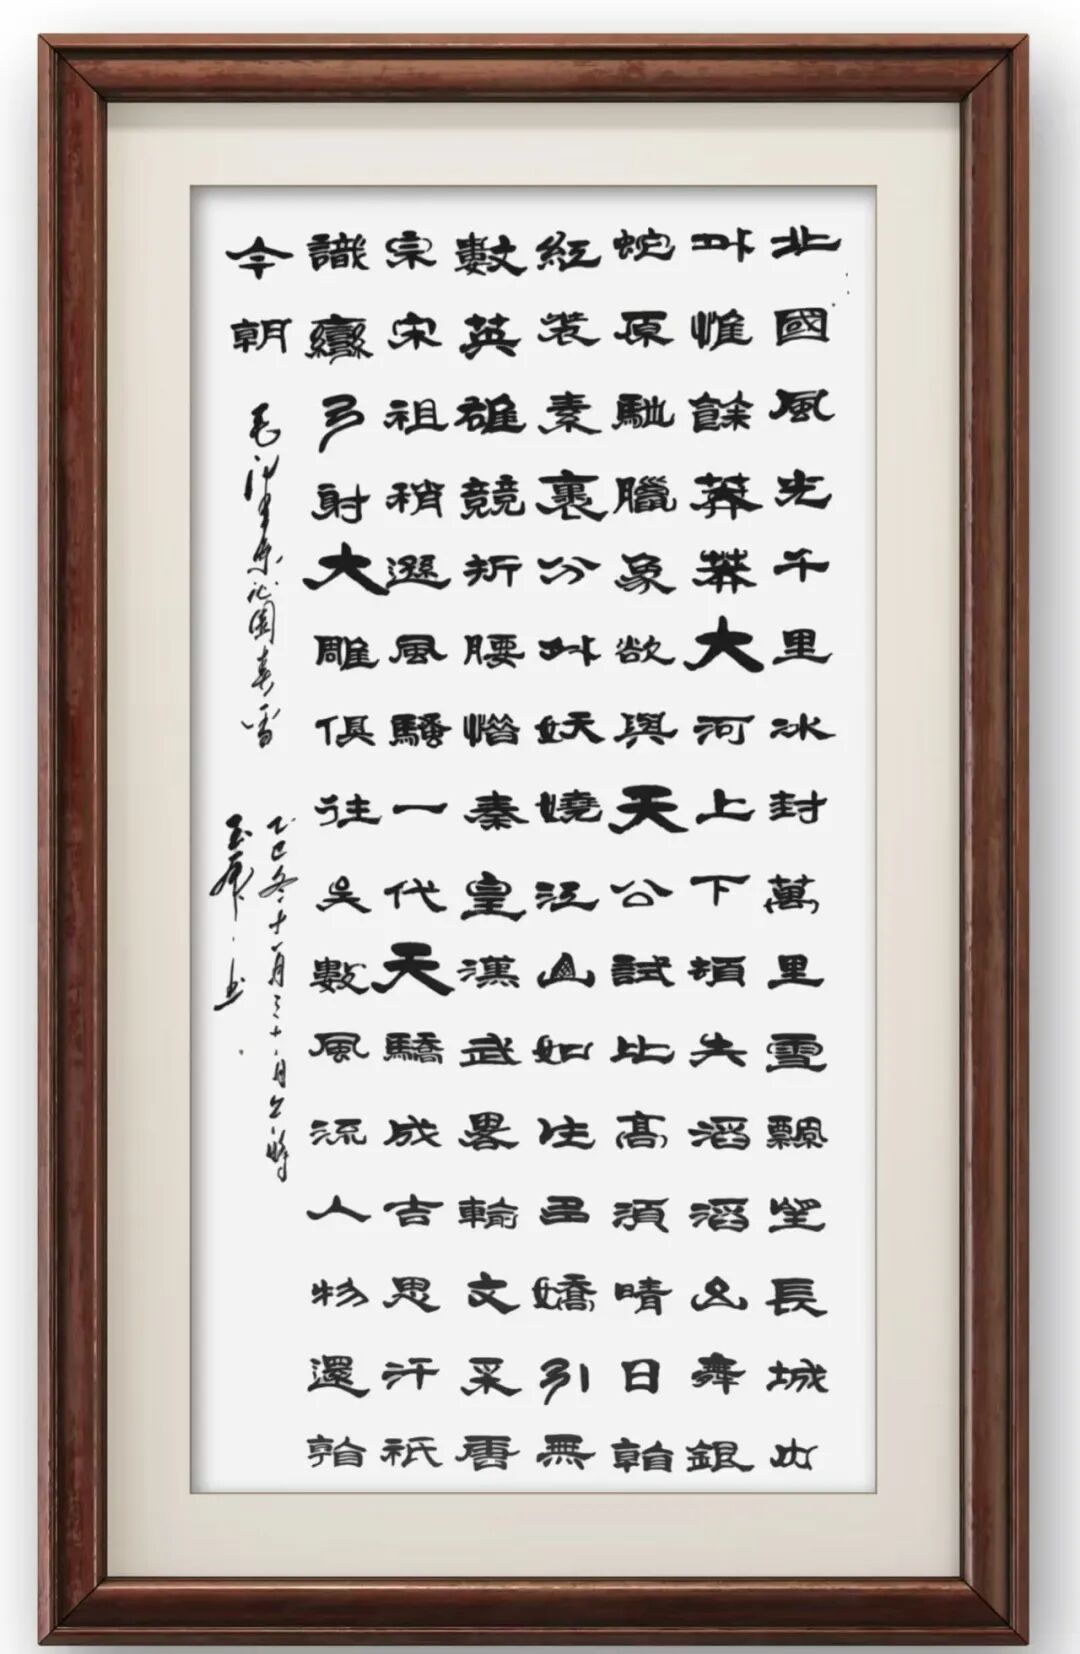 北國風光千里冰封萬里雪飄望長城内
外惟餘莽莽大河上下頓失滔滔山舞銀
蛇原馳臘象欲與天公試比高須晴日看
紅裝素裹分外妖嬈江山如此多嬌引無
數英雄競折腰惜秦皇漢武畧輸文采唐
宗宋祖稍遜風騷一代天驕成吉思汗祇
識彎弓射大雕俱往矣數風流人物還看
今朝
毛泽东沁園春雪
乙巳冬十一月三十日